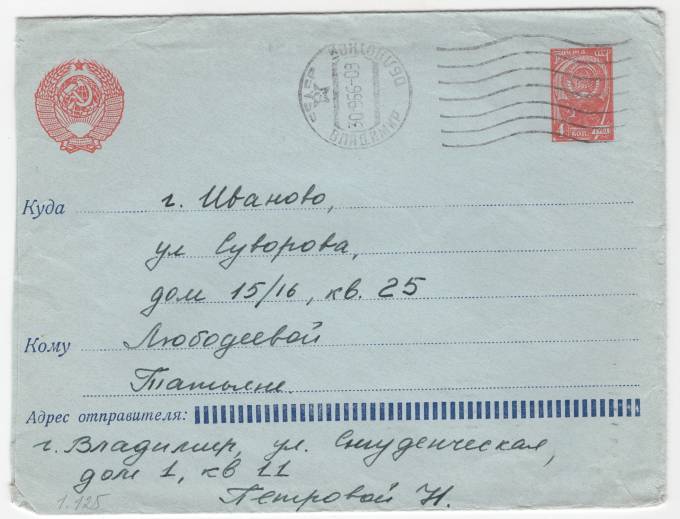 30-9 66-09
ВЛАДИМИР
4 КОП.
Куда г. Иваново,
ул Суворова,
дом 15/16, кв. 25
Кому Любодеевой
Татьяне.
Адрес отправителя:
г. Владимир, ул. Студенческая,
дом 1, кв 11
Петровой Н.
1.125